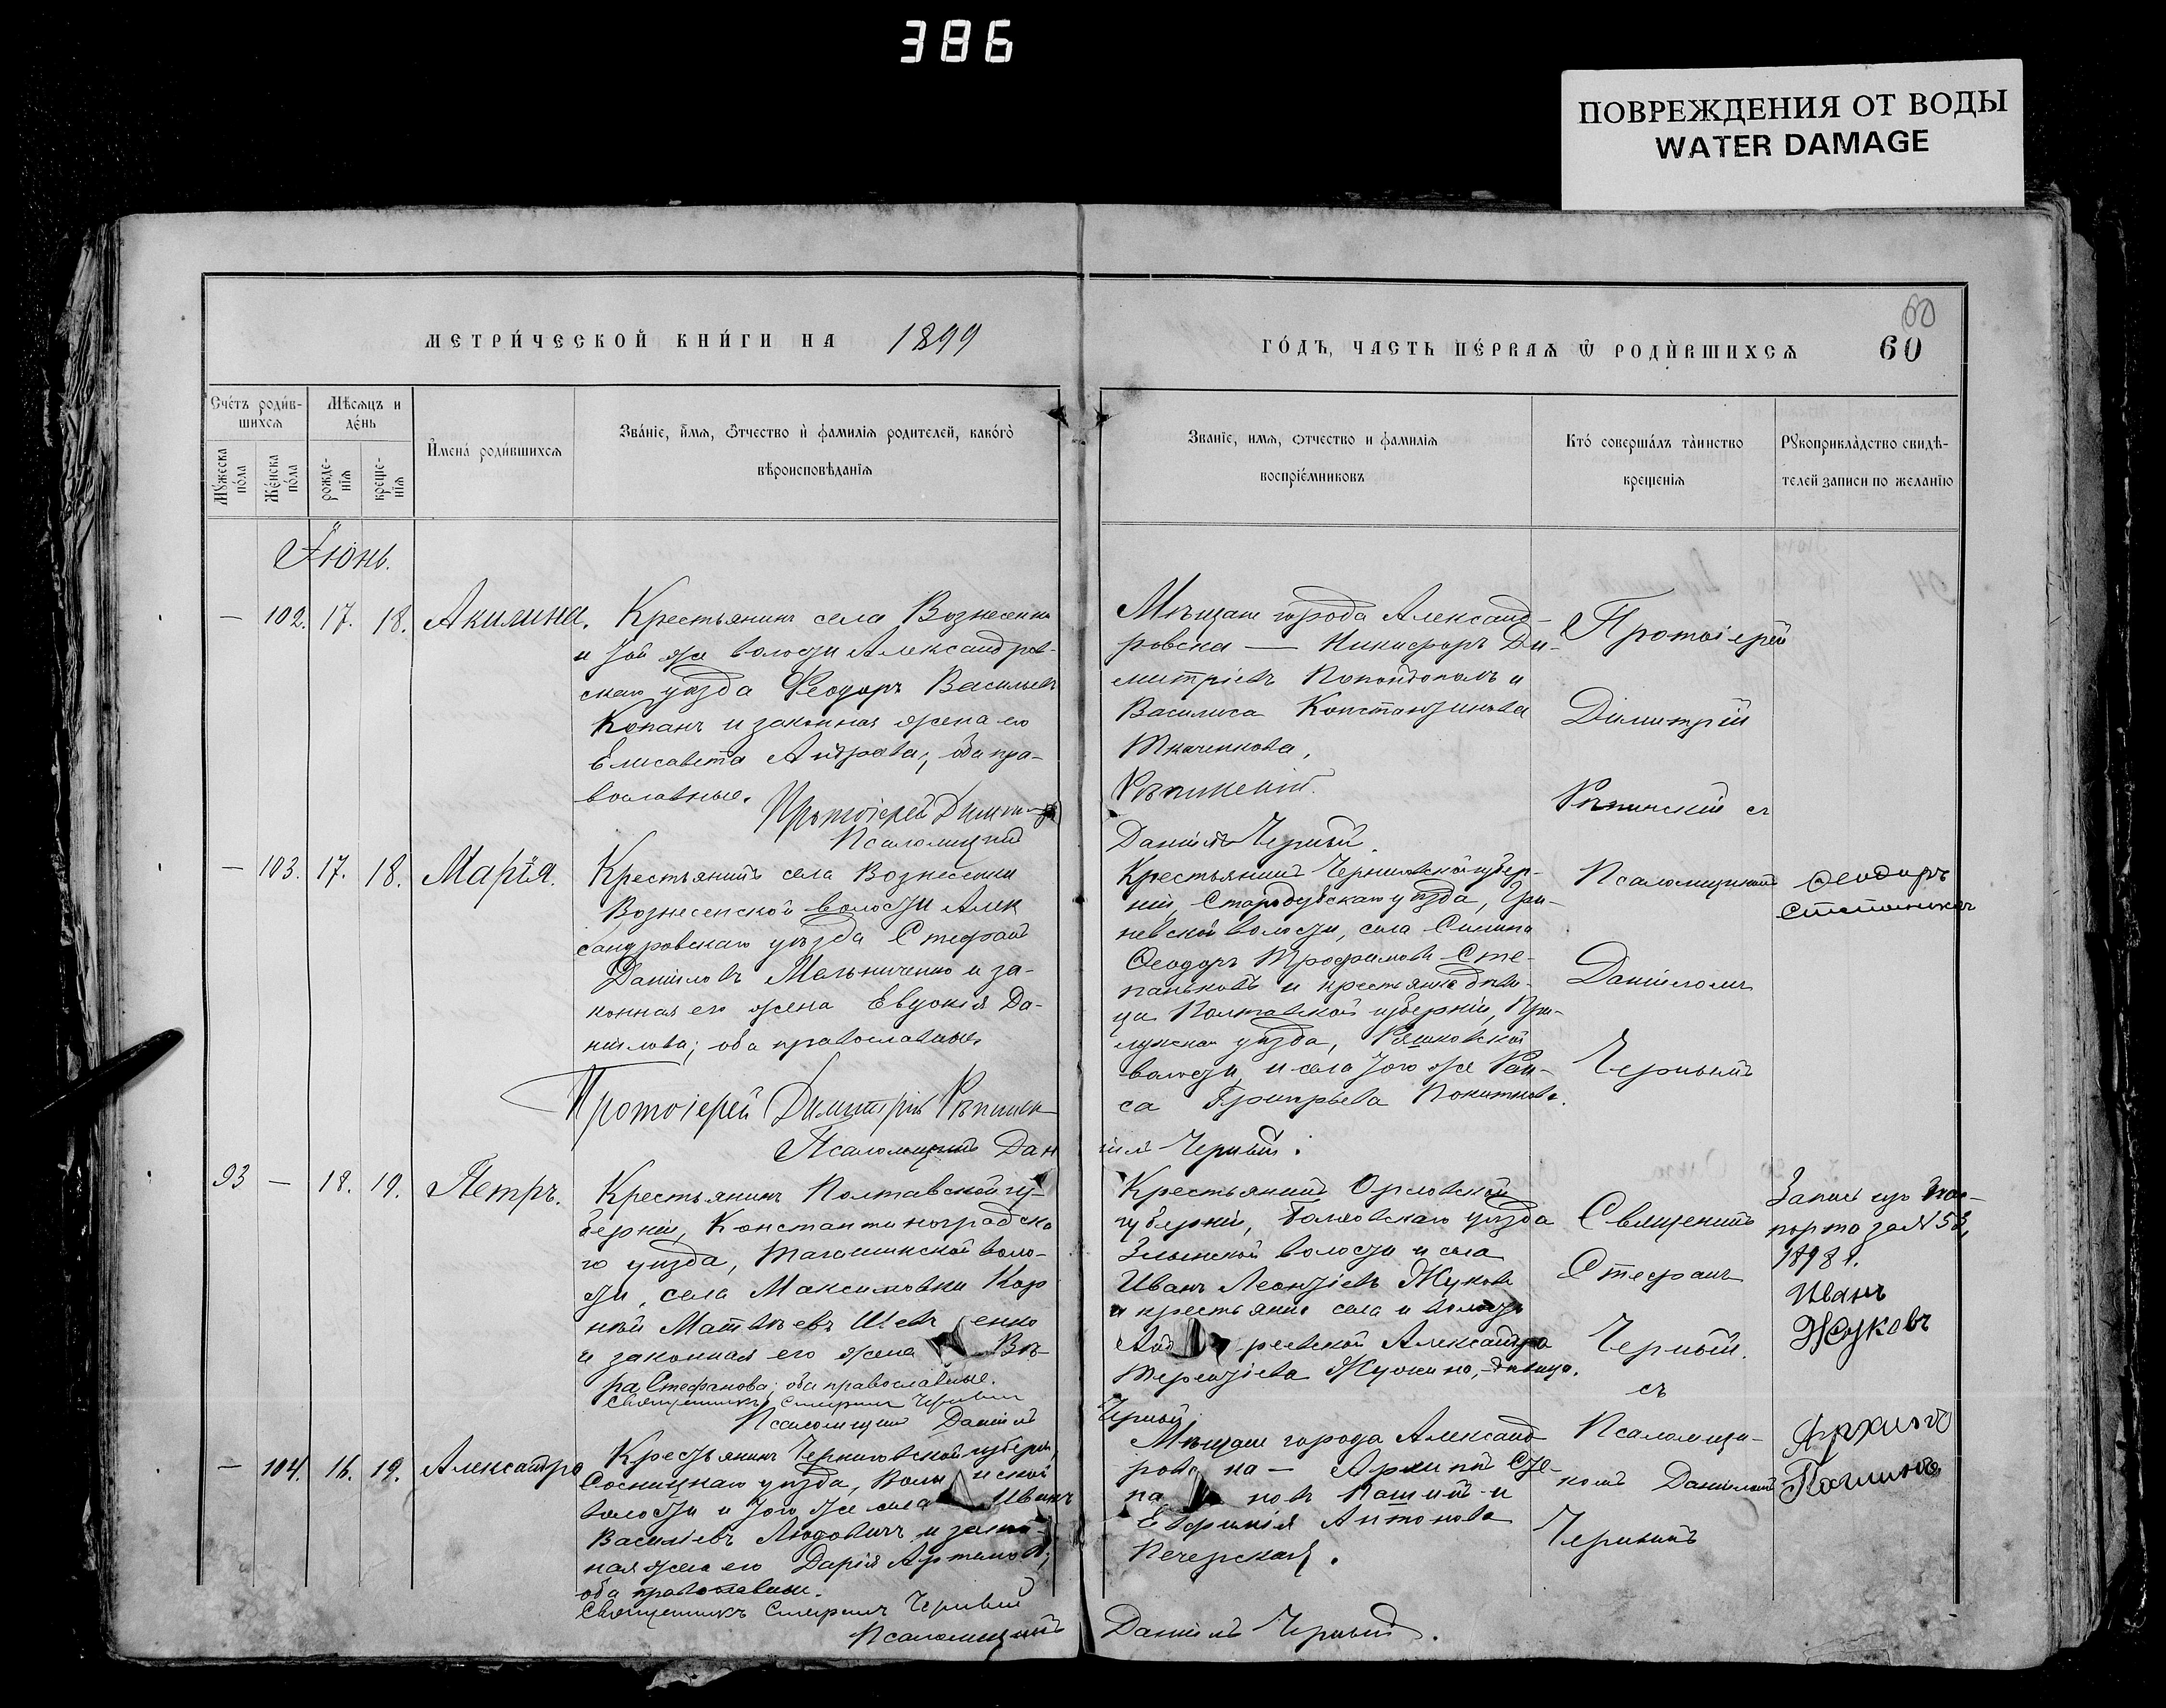 386
ПОВРЕЖДЕНИЯ ОТ ВОДЫ
WATER DAMAGE
МЕТРИ́ЧЕСКОЙ КНИ́ГИ НА 1899
ГО́ДЪ, ЧАСТЬ ПЕ́РВАѦ Ѡ҆ РОДИ́ВШИХСѦ
60
60
Сче́тъ роди́в-
шихсѧ
Мѣ́сѧцъ и
де́нь
Мꙋ́жеска
по́ла
Же́нска
по́ла
рожде-
нїѧ
креще-
нїѧ
И҆мена́ роди́вшихсѧ
Зва́нїе, и҆́мѧ, ѻ҆́тчество и҆ фамилїѧ родителей, како́гѡ
вѣроисповѣ́данїѧ
Званїе, имѧ, ѻтчество и фамилїѧ
воспрїе́мниковъ
Кто́ совершалъ та́инство
крещенїѧ
Рꙋкоприкла́дство свидѣ́-
телей записи по желанїю
Іюнь.
— 102. 17. 18. Акилина.
Крестьянинъ села Вознесенки
и той же волости Александров-
скаго уѣзда Ѳеодоръ Васильевъ
Копанъ и законная жена его
Елисавета; оба пра-
вославные.
Протоіерей
Псаломщикъ
Мѣщане города Александ-
ровска — Никифоръ Ди-
митріевъ и
Василиса Константинова
Ткаченкова,
Рѣпинскій.
Даніилъ Черный.
Протоіерей
Димитрій
Рѣпинскій съ
— 103. 17. 18. Марія.
Крестьянинъ села Вознесенки
Вознесенской волости Алек
сандровскаго уѣзда Стефанъ
Даніиловъ Мельниченко и за-
конная его жена Евдокія Да-
ніилова; оба православные.
Протоіерей Димитрій Рѣпинск
Псаломщикъ Дан
Крестьянинъ Черниговской губер-
ніи, Стародубскаго уѣзда,
невской волости, села
Ѳеодоръ Трофимовъ Сте-
паньковъ и крестьянка дѣви-
ца Полтавской губерніи, При-
лукскаго уѣзда, Ряшковской
волости и села того же Раи-
са Григорьева
іилъ Черный.
Псаломщикомъ
Даніиломъ
Чернымъ
Ѳеодоръ
Степаньковъ
93 — 18. 19. Петръ.
Крестьянинъ Полтавской гу-
берніи, Константиноградска
го уѣзда, воло-
сти, села Максимовки Кор
нилій Матвѣевъ Шев енко
и законная его жена Вѣ-
ра Стефанова; оба православные.
Священникъ Стефанъ Черный
Псаломщикъ Даніилъ
Крестьянинъ Орловской
губерніи, Болховскаго уѣзда
Злынской волости и села
Иванъ Леонтіевъ Жуковъ
и крестьянка села и волости
Александра
Терентіева дѣвица.
Черный.
Священникъ
Стефанъ
Черный.
съ
Запись изъ пас-
порта за № 53,
1898 г.
Иванъ
Жуковъ
— 104. 16. 19. Александра
Крестьянинъ Черниговской губерніи,
Сосницкаго уѣзда, Волы нской
волости и того же села Иванъ
Василіевъ Людовичъ и закон-
ная жена его Дарія Артемова;
оба православные.
Священникъ Стефанъ Черный
Псаломщикъ
Мѣщане города Александ
ровска — Архипъ Сте-
па новъ Пашинъ и
Евфимія Антонова
Печерская.
Даніилъ Черный.
Псаломщи-
комъ Даніиломъ
Чернымъ
Архипъ